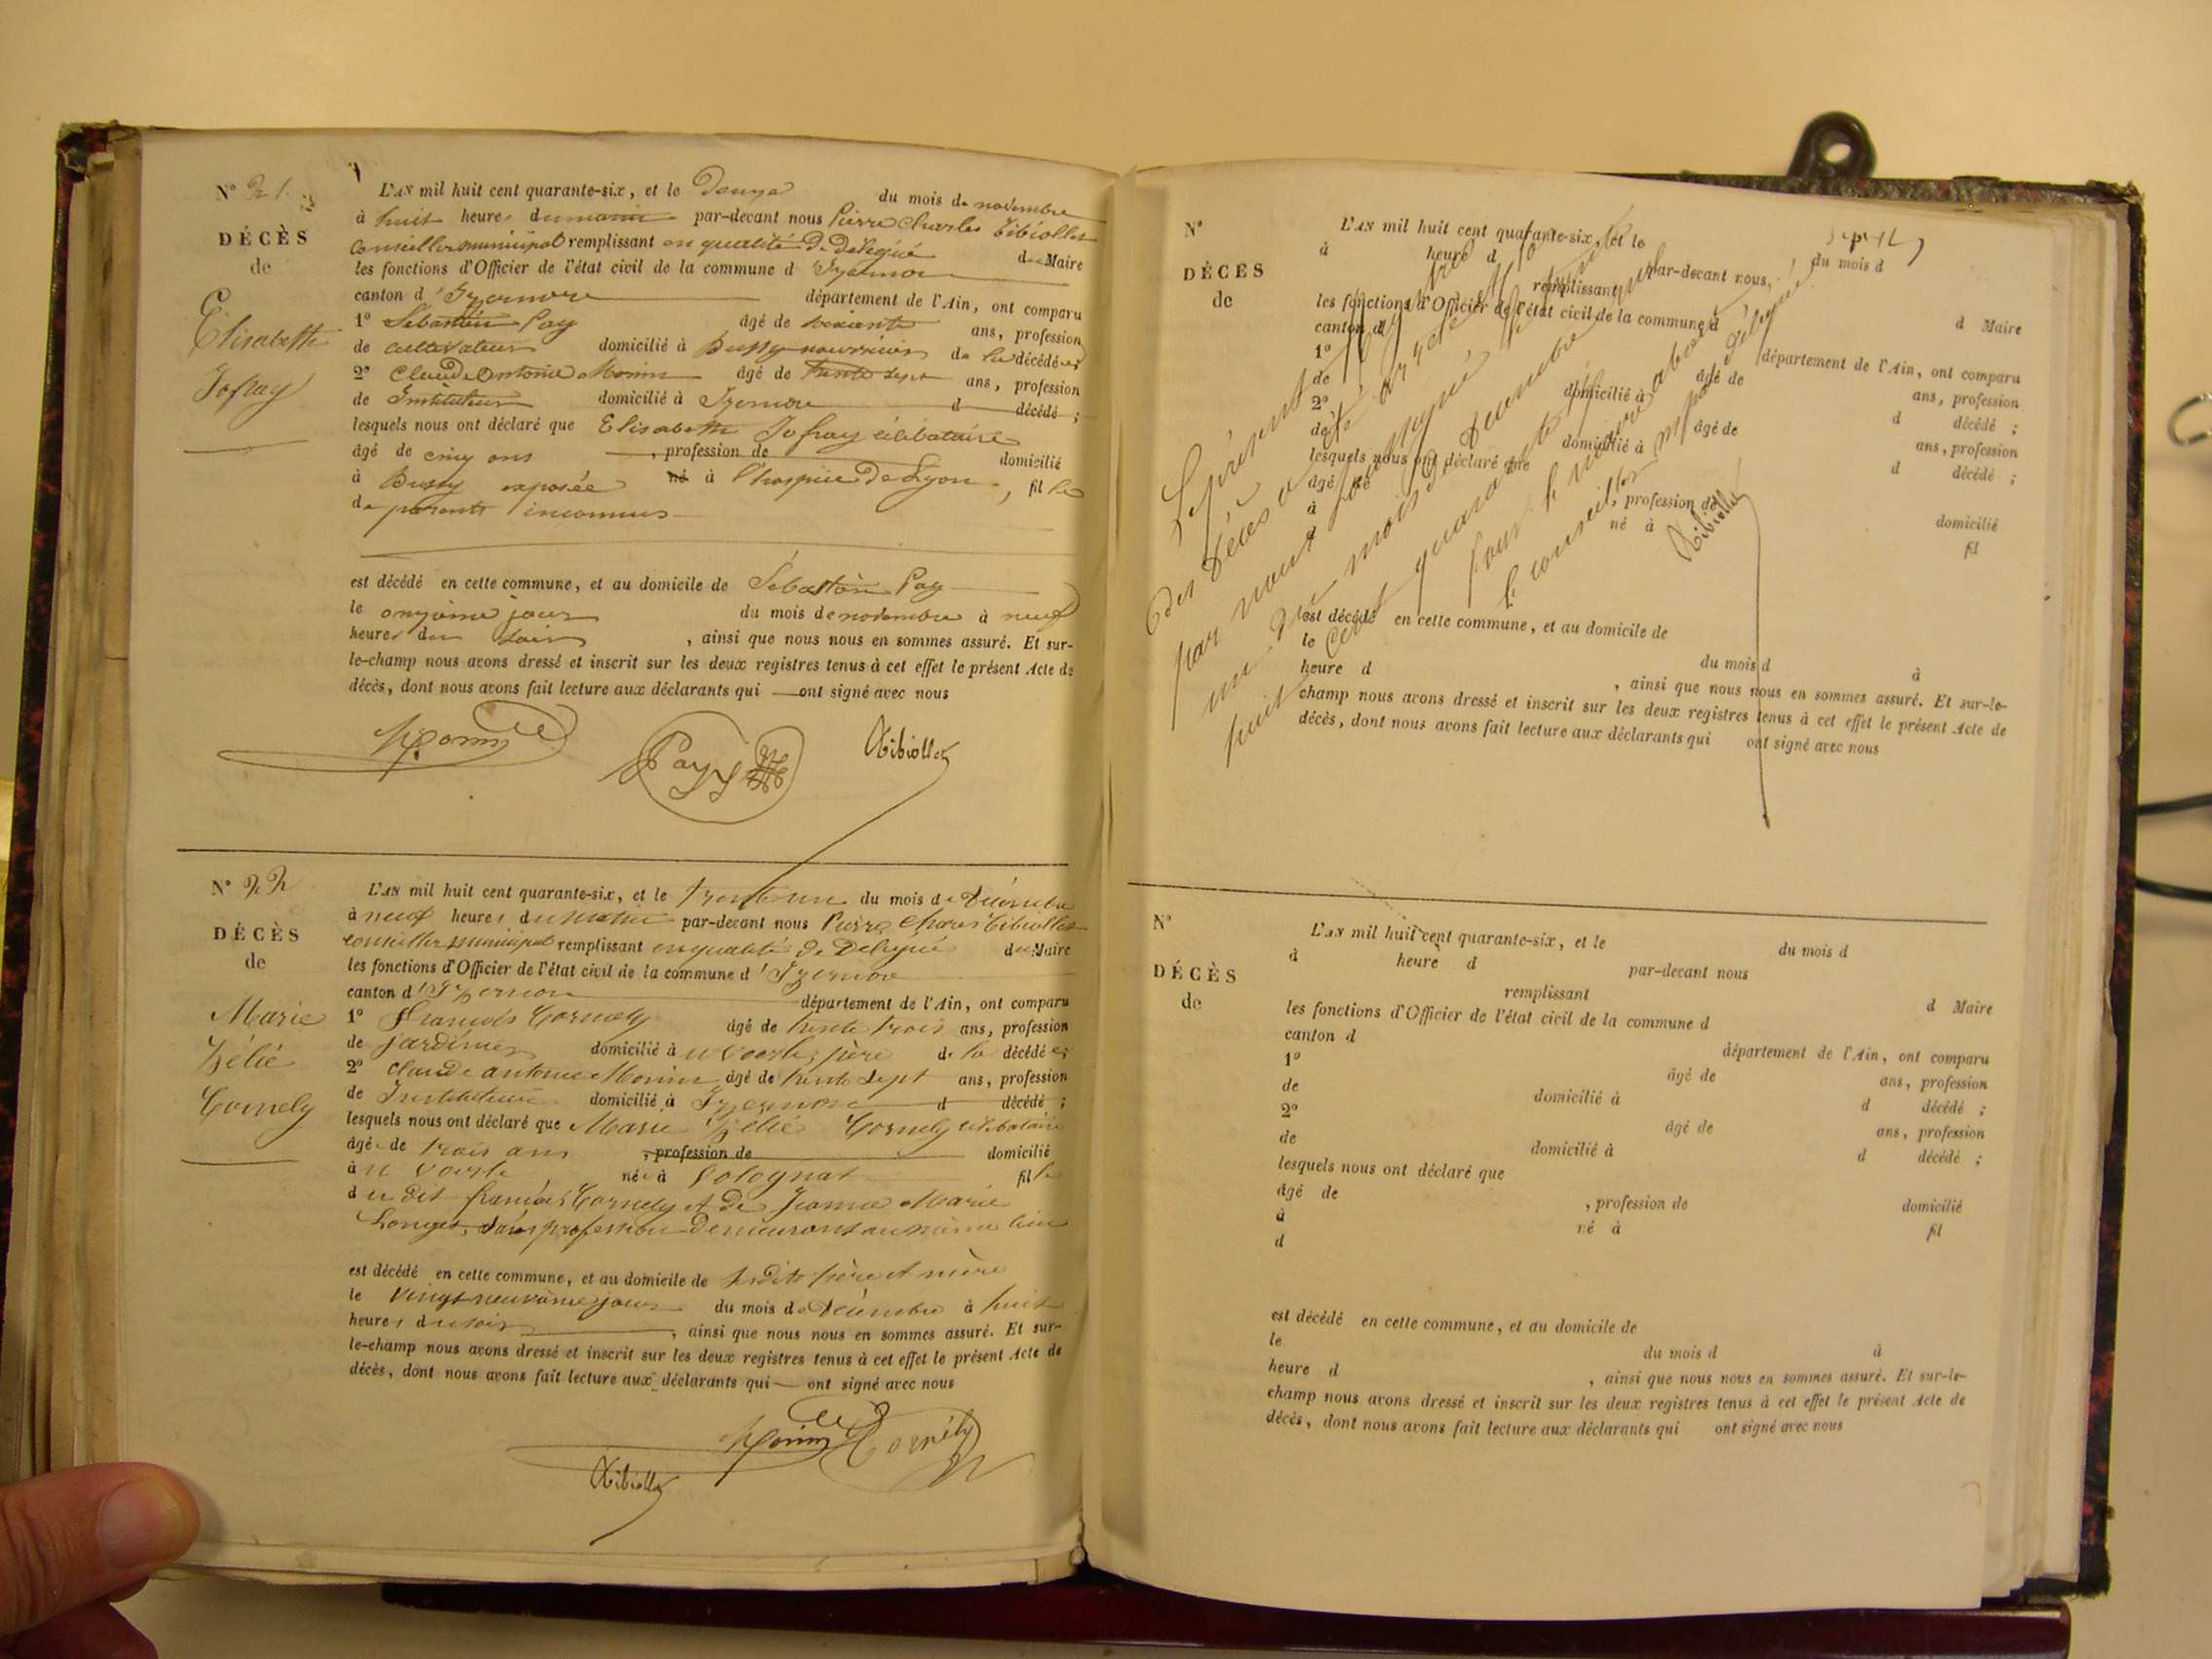 N° 21.
DÉCÈS
de
Elisabeth
Jofray
L'AN mil huit cent quarante-six, et le Douze du mois de novembre
à huit heures du matin par-devant nous Pierre Charles Tibiollet
conseiller municipal remplissant en qualité de Délégué du Maire
les fonctions d'Officier de l'état civil de la commune d'Izernore
canton d'Izernore département de l'Ain, ont comparu
1° Sébastien Pay âgé de soixante ans, profession
de cultivateur domicilié à Bussy nourricier de la décédée;
2° Claude Antoine Morin âgé de trente sept ans, profession
de Instituteur domicilié à Izernore d décédé ;
lesquels nous ont déclaré que Elisabeth Jofray célibataire
âgé de cinq ans , profession de domicilié
à Bussy exposée né à l'hospice de Lyon, fille
de parents inconnus
est décédé en cette commune, et au domicile de Sébastien Pay
le onzième jour du mois de novembre à neuf
heures du soir , ainsi que nous nous en sommes assuré. Et sur-
le-champ nous avons dressé et inscrit sur les deux registres tenus à cet effet le présent Acte de
décès, dont nous avons fait lecture aux déclarants qui ont signé avec nous
Morin Pay Tibiollet
N° 22
DÉCÈS
de
Marie
Zélie
Cornely
L'AN mil huit cent quarante-six, et le trente un du mois de Décembre
à neuf heures du matin par-devant nous Pierre Charles Tibiollet
conseiller municipal remplissant en qualité de Délégué du Maire
les fonctions d'Officier de l'état civil de la commune d'Izernore
canton d'Izernore département de l'Ain, ont comparu
1° François Cornely âgé de trente trois ans, profession
de jardinier domicilié à père de la décédée;
2° Claude antoine Morin âgé de trente sept ans, profession
de Instituteur domicilié à Izernore d décédé ;
lesquels nous ont déclaré que Marie Zélie Cornely célibataire
âgé de trois ans , profession de domicilié
à née à Volognat fille
du dit françois Cornely et de Jeanne Marie
Longet, sans profession Demeurant au même lieu
est décédé en cette commune, et au domicile de père et mère
le vingt neuvième jour du mois de Décembre à huit
heures du soir , ainsi que nous nous en sommes assuré. Et sur-
le-champ nous avons dressé et inscrit sur les deux registres tenus à cet effet le présent Acte de
décès, dont nous avons fait lecture aux déclarants qui ont signé avec nous
Morin Cornély
Tibiollet
N°
DÉCÈS
de
L'AN mil huit cent quarante-six, et le du mois d
à heure d par-devant nous,
remplissant d Maire
les fonctions d'Officier de l'état civil de la commune d
canton d département de l'Ain, ont comparu
1° âgé de ans, profession
de domicilié à d décédé ;
2° âgé de ans, profession
de domicilié à d décédé ;
lesquels nous ont déclaré que
âgé de , profession de domicilié
à né à fil
d
est décédé en cette commune, et au domicile de
le du mois d à
heure d , ainsi que nous nous en sommes assuré. Et sur-le-
champ nous avons dressé et inscrit sur les deux registres tenus à cet effet le présent Acte de
décès, dont nous avons fait lecture aux déclarants qui ont signé avec nous
Le présent
des Décès a été
par nous soussigné
un du mois de Décembre
huit cent quarante
Pour le maire absent
le conseiller mpal délégué
Tibiollet
N°
DÉCÈS
de
L'AN mil huit cent quarante-six, et le du mois d
à heure d par-devant nous
remplissant d Maire
les fonctions d'Officier de l'état civil de la commune d
canton d département de l'Ain, ont comparu
1° âgé de ans, profession
de domicilié à d décédé ;
2° âgé de ans, profession
de domicilié à d décédé ;
lesquels nous ont déclaré que
âgé de , profession de domicilié
à né à fil
d
est décédé en cette commune, et au domicile de
le du mois d à
heure d , ainsi que nous nous en sommes assuré. Et sur-le-
champ nous avons dressé et inscrit sur les deux registres tenus à cet effet le présent Acte de
décès, dont nous avons fait lecture aux déclarants qui ont signé avec nous